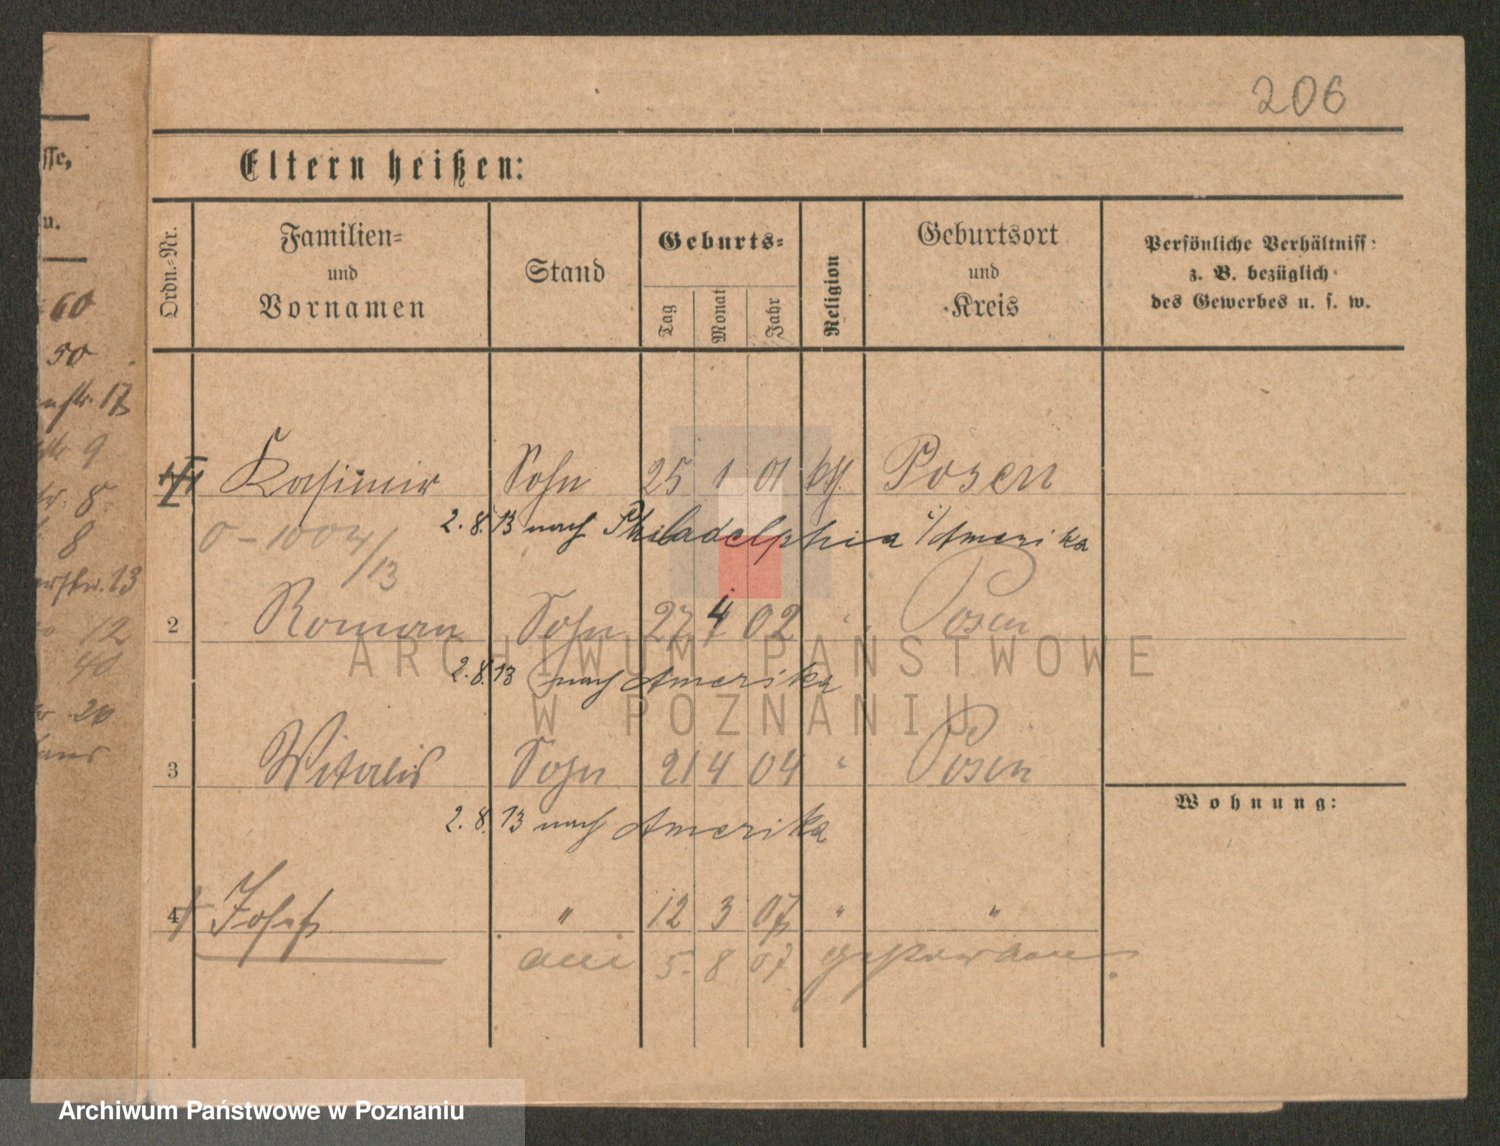 206
Eltern heißen:
Ordn.-Nr.
Familien-
und
Vornamen
Stand
Geburts-
Tag
Monat
Jahr
Religion
Geburtsort
und
Kreis
Persönliche Verhältniss:
z. B. bezüglich
des Gewerbes u. s. w.
Kasimir Sohn 25 1 01 kth. Posen
2.8.13 nach Philadelphia i/Amerika
0-1004/13
2 Roman Sohn 27 4 02 " Posen
2.8.13 nach Amerika
3 Witalis Sohn 21 4 04 " Posen
2.8.13 nach Amerika
Wohnung:
4 Josef " 12 3 07 " "
am 5. 8 07 gestorben.
sse,
u.
60
50
17
9
8
8
13
12
40
20
ARCHIWUM PAŃSTWOWE
W POZNANIU
Archiwum Państwowe w Poznaniu